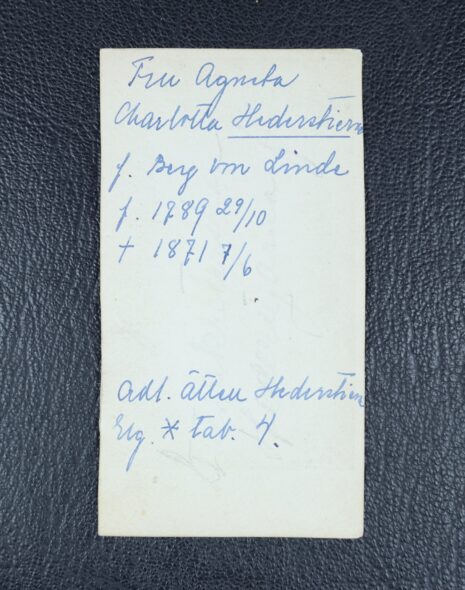 Fru Agneta
Charlotta Hederstiern
f. Berg von Linde
f. 1789 29/10
+ 1871 7/6
Adl. ätten Hederstiern
Elg. * tab. 4.